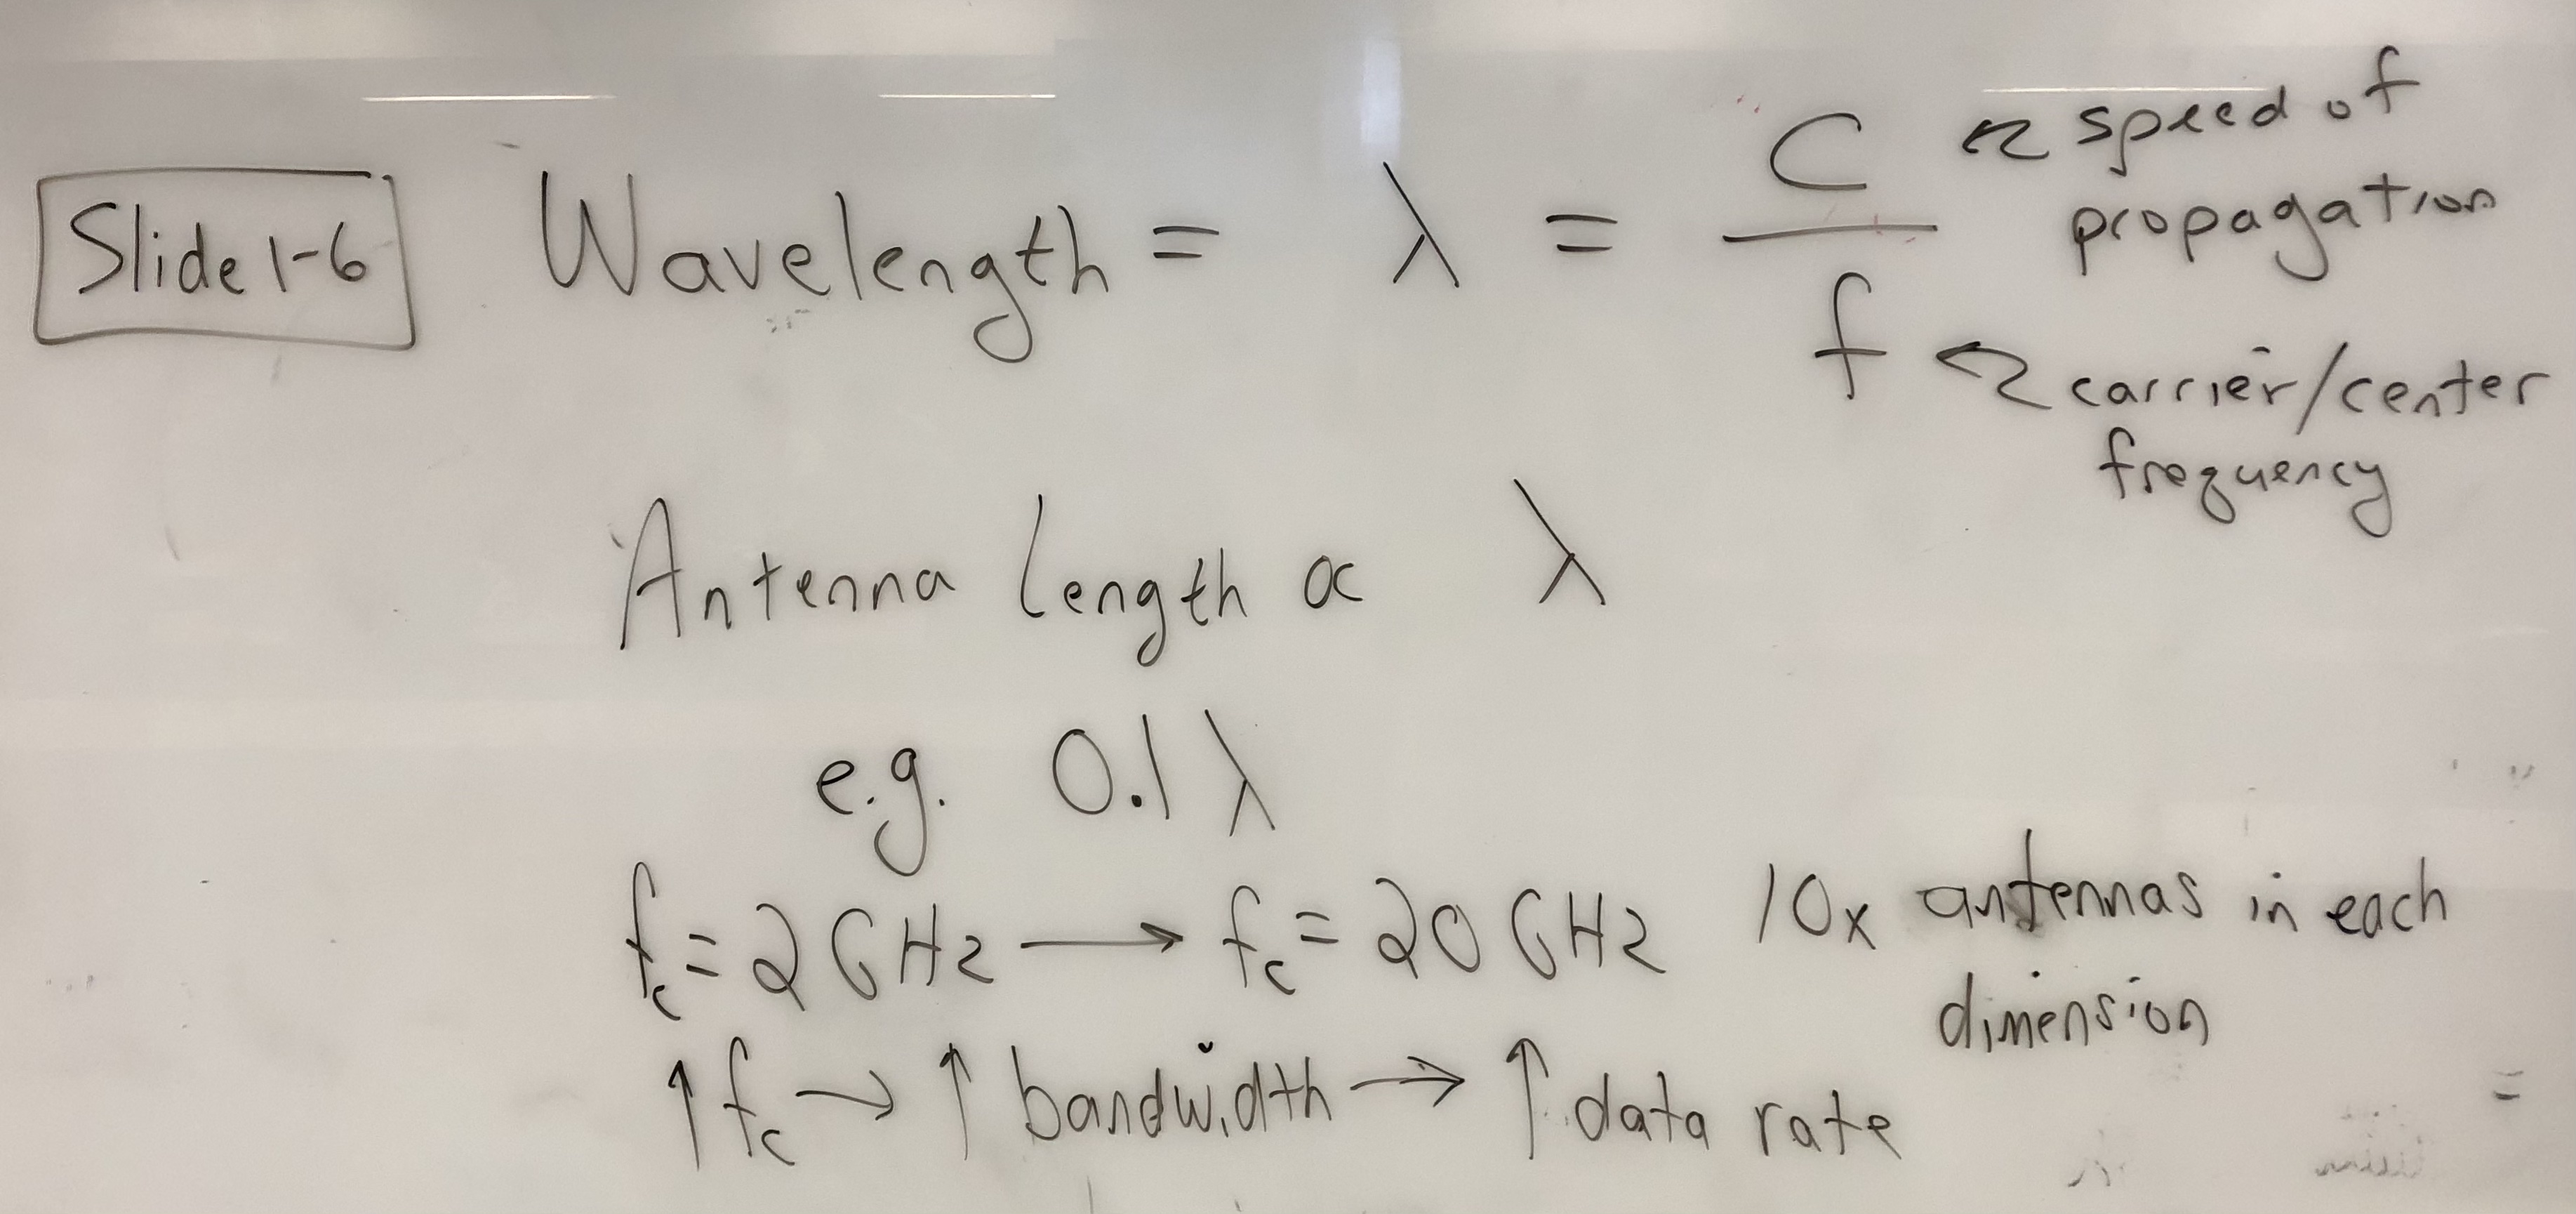 Slide 1-6
Wavelength = λ = C / f
← speed of
propagation
← carrier/center
frequency
Antenna length ∝ λ
e.g. 0.1 λ
f_c = 2 GHz → f_c = 20 GHz 10x antennas in each
dimension
↑ f_c → ↑ bandwidth → ↑ data rate